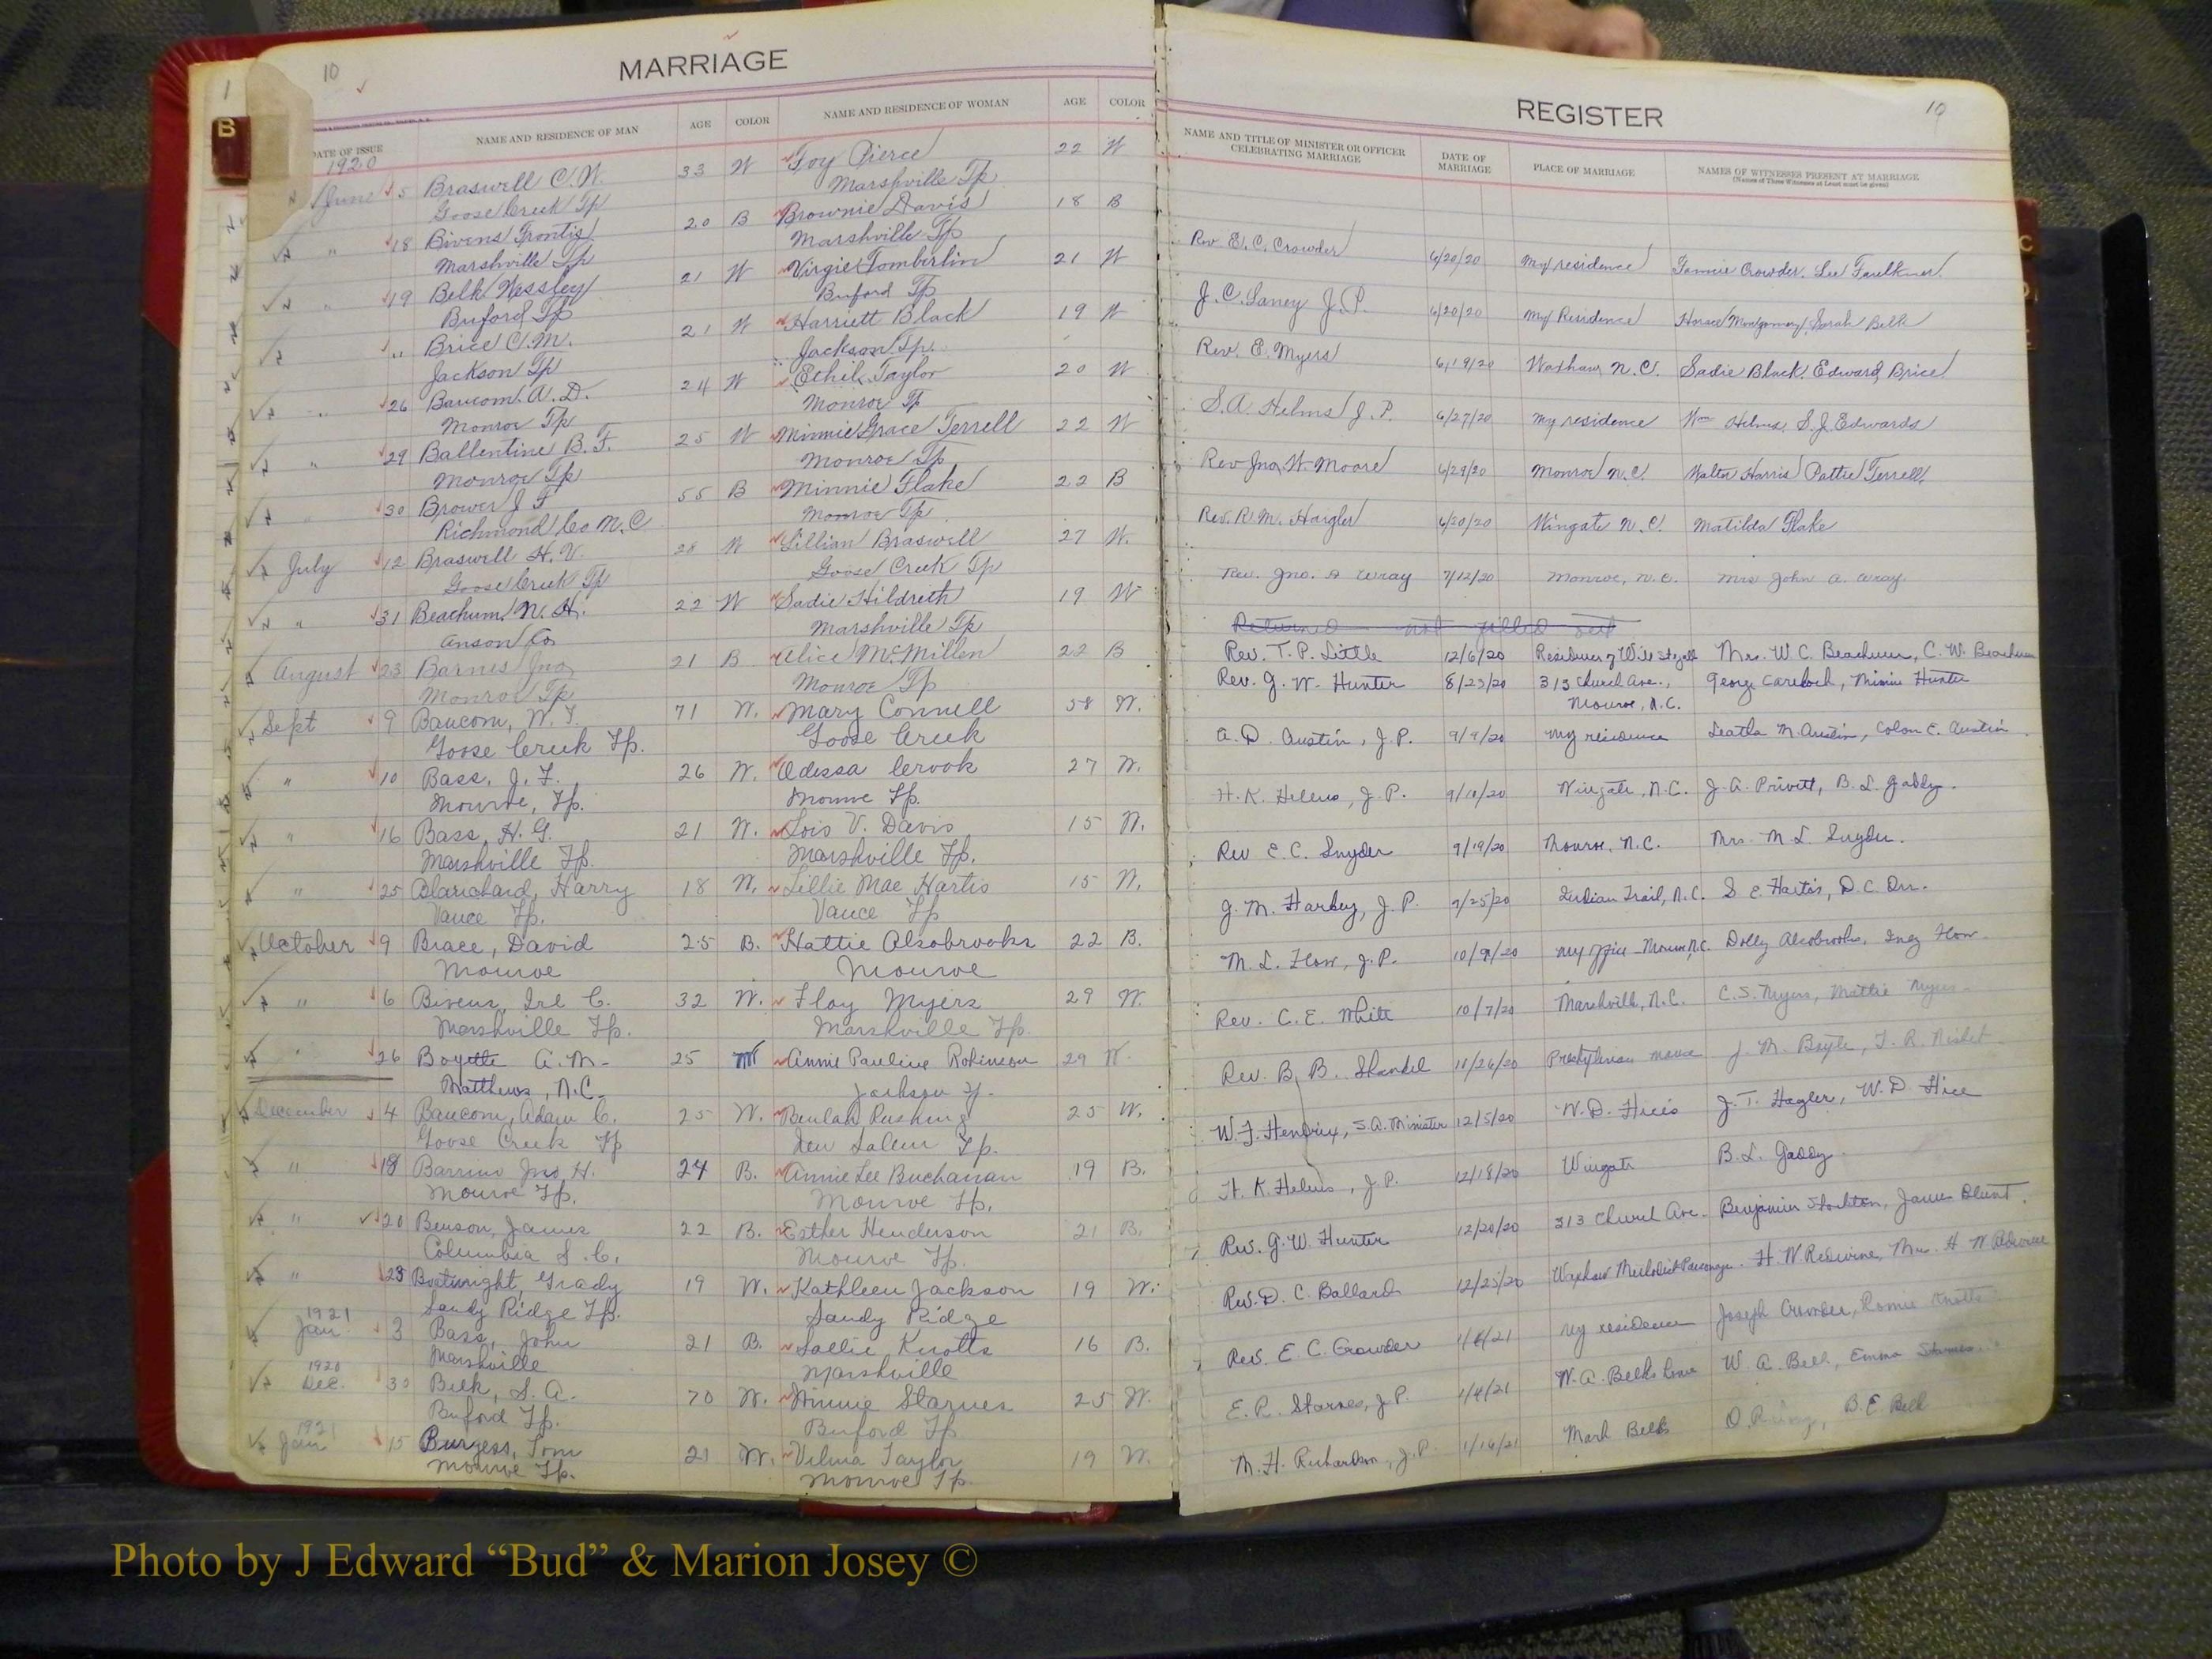 10
MARRIAGE
DATE OF ISSUE NAME AND RESIDENCE OF MAN AGE COLOR NAME AND RESIDENCE OF WOMAN AGE COLOR
1920
June 5 Braswell C. W. 33 W Foy Pierce 22 W
Goose Creek Tp Marshville Tp
" 18 Bivens Frontis 20 B Brownie Davis 18 B
Marshville Tp Marshville Tp
" 19 Belk Wessley 21 W Virgie Tomberlin 21 W
Buford Tp Buford Tp
" Brice C. M. 21 W Harriett Black 19 W
Jackson Tp Jackson Tp.
" 26 Baucom A. D. 24 W Ethel Taylor 20 W
Monroe Tp Monroe Tp
" 29 Ballentine B. F. 25 W Minnie Grace Terrell 22 W
Monroe Tp Monroe Tp
" 30 Brower J F 55 B Minnie Flake 22 B
Richmond Co N.C Monroe Tp
July 12 Braswell H. V. 28 W Lillian Braswell 27 W.
Goose Creek Tp Goose Creek Tp
" 31 Beachum N. H. 22 W Sadie Hildreth 19 W
Anson Co Marshville Tp
August 23 Barnes Jno 21 B Alice McMillen 22 B
Monroe Tp Monroe Tp
Sept 9 Baucom, W. T. 71 W. Mary Connell 58 W.
Goose Creek Tp. Goose Creek
" 10 Bass, J. F. 26 W. Odessa Crook 27 W.
Monroe, Tp. Monroe Tp.
" 16 Bass, H. G. 21 W. Lois V. Davis 15 W.
Marshville Tp. Marshville Tp.
" 25 Blanchard, Harry 18 W. Lillie Mae Hartis 15 W.
Vance Tp. Vance Tp
October 9 Brace, David 25 B. Hattie Alsobrooks 22 B.
Monroe Monroe
" 6 Bivens, Irl C. 32 W. Floy Myers 29 W.
Marshville Tp. Marshville Tp.
" 26 Boyette A. M. 25 W Annie Pauline Robinson 29 W
Matthews, N.C. Jackson Tp.
December 4 Baucom, Adam C. 25 W. Beulah Rushing 25 W.
Goose Creek Tp New Salem Tp.
" 18 Barrino Jno. H. 24 B. Annie Lee Buchanan 19 B.
Monroe Tp. Monroe Tp.
" 20 Benson, James 22 B. Esther Henderson 21 B.
Columbia S. C. Monroe Tp.
" 23 Boatwright, Grady 19 W. Kathleen Jackson 19 W.
Sandy Ridge Tp. Sandy Ridge
1921
Jan 3 Bass, John 21 B. Sallie Knotts 16 B.
Marshville Marshville
1920
Dec. 30 Belk, S. A. 70 W. Winnie Starnes 25 W.
Buford Tp. Buford Tp
1921
Jan 15 Burgess, Tom 21 W. Velma Taylor 19 W.
Monroe Tp. Monroe Tp.
REGISTER
10
NAME AND TITLE OF MINISTER OR OFFICER CELEBRATING MARRIAGE DATE OF MARRIAGE PLACE OF MARRIAGE NAMES OF WITNESSES PRESENT AT MARRIAGE
(Names of Three Witnesses at Least must be given)
Rev E. C. Crowder 6/20/20 My residence Fannie Crowder, Lee Faulkner
J. C. Laney J. P. 6/20/20 My Residence Horace Montgomery, Sarah Belk
Rev. E. Myers 6/19/20 Waxhaw N.C. Sadie Black, Edward Brice
S. A. Helms J. P. 6/27/20 My residence Wm Helms, S. J. Edwards
Rev Jno. W. Moore 6/29/20 Monroe N.C. Walter Harris Pattie Terrell
Rev. R. M. Hargler 6/20/20 Wingate N.C. Matilda Flake
Rev. Jno. A Wray 7/12/20 Monroe, N.C. Mrs John A. Wray
Returned not filled out
Rev. T. P. Little 12/6/20 Residence of Will Stegall Mrs. W C. Beachum, C. W. Beachum
Rev. G. W. Hunter 8/23/20 313 Church Ave., George Careloch, Minnie Hunter
Monroe, N.C.
A. D. Austin, J. P. 9/9/20 My residence Leatha M. Austin, Colon E. Austin
H. K. Helms, J. P. 9/10/20 Wingate, N.C. J. A. Privett, B. L. Gaddy.
Rev E. C. Snyder 9/19/20 Monroe, N.C. Mrs. M. L. Snyder.
G. M. Harkey, J. P. 9/25/20 Indian Trail, N.C. S E. Hartis, D. C. Orr.
M. L. Flow, J. P. 10/9/20 My Office - Monroe, N.C. Dolly Alsobrooks, Inez Flow
Rev. C. E. White 10/7/20 Marshville, N.C. C. S. Myers, Mattie Myers
Rev. B. B. Shankel 11/26/20 Presbyterian manse J. M. Boyte, T. R. Nisbet
W. F. Hendrix, S.A. Minister 12/5/20 W. D. Hices J. T. Hagler, W. D Hice
H. K. Helms, J. P. 12/18/20 Wingate B. L. Gaddy
Rev. G. W. Hunter 12/20/20 313 Church Ave. Benjamin Stockton, James Blunt.
Rev. D. C. Ballard 12/23/20 Waxhaw Methodist Parsonage H. W Redwine, Mrs. H W Redwine
Rev. E. C. Crowder 1/4/21 My residence Joseph Crowder, Romie Knotts
E. R. Starnes, J. P. 1/4/21 W. A. Belks home W. A. Belk, Emma Starnes
M. H. Richardson, J. P. 1/16/21 Mark Belks B. E. Belk
B
C
Photo by J Edward “Bud” & Marion Josey ©